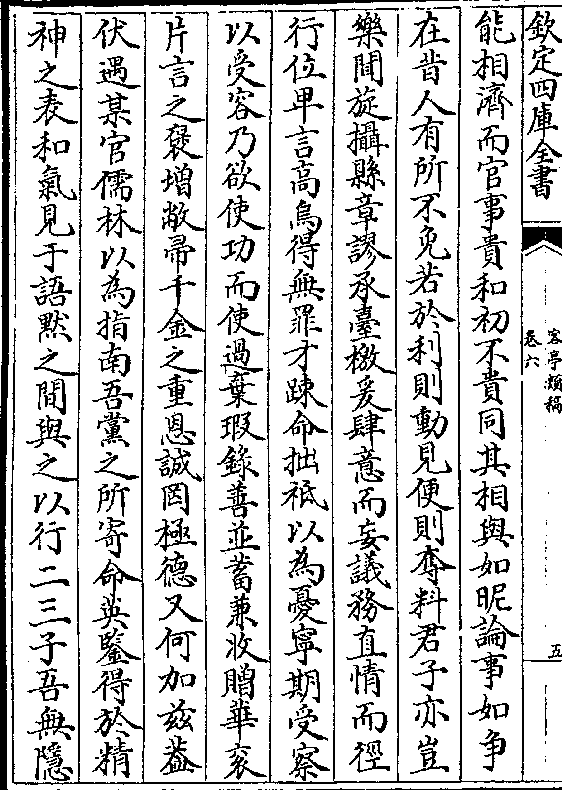 欽定四庫全書
客亭類稿
卷六
五
能相濟而官事貴和初不貴同其相與如昵論事如爭
在昔人有所不免若於利則動見便則奪料君子亦豈
樂間旋攝縣章謬承臺檄爰肆意而妄議務直情而徑
行位卑言高烏得無罪才踈命拙祗以為憂寧期受察
以受容乃欲使功而使過棄瑕錄善並蓄兼收贈華衮
片言之褒增敝帚千金之重恩誠罔極德又何加兹葢
伏遇某官儒林以為指南吾黨之所寄命英鑒得於精
神之表和氣見于語默之間與之以行二三子吾無隱